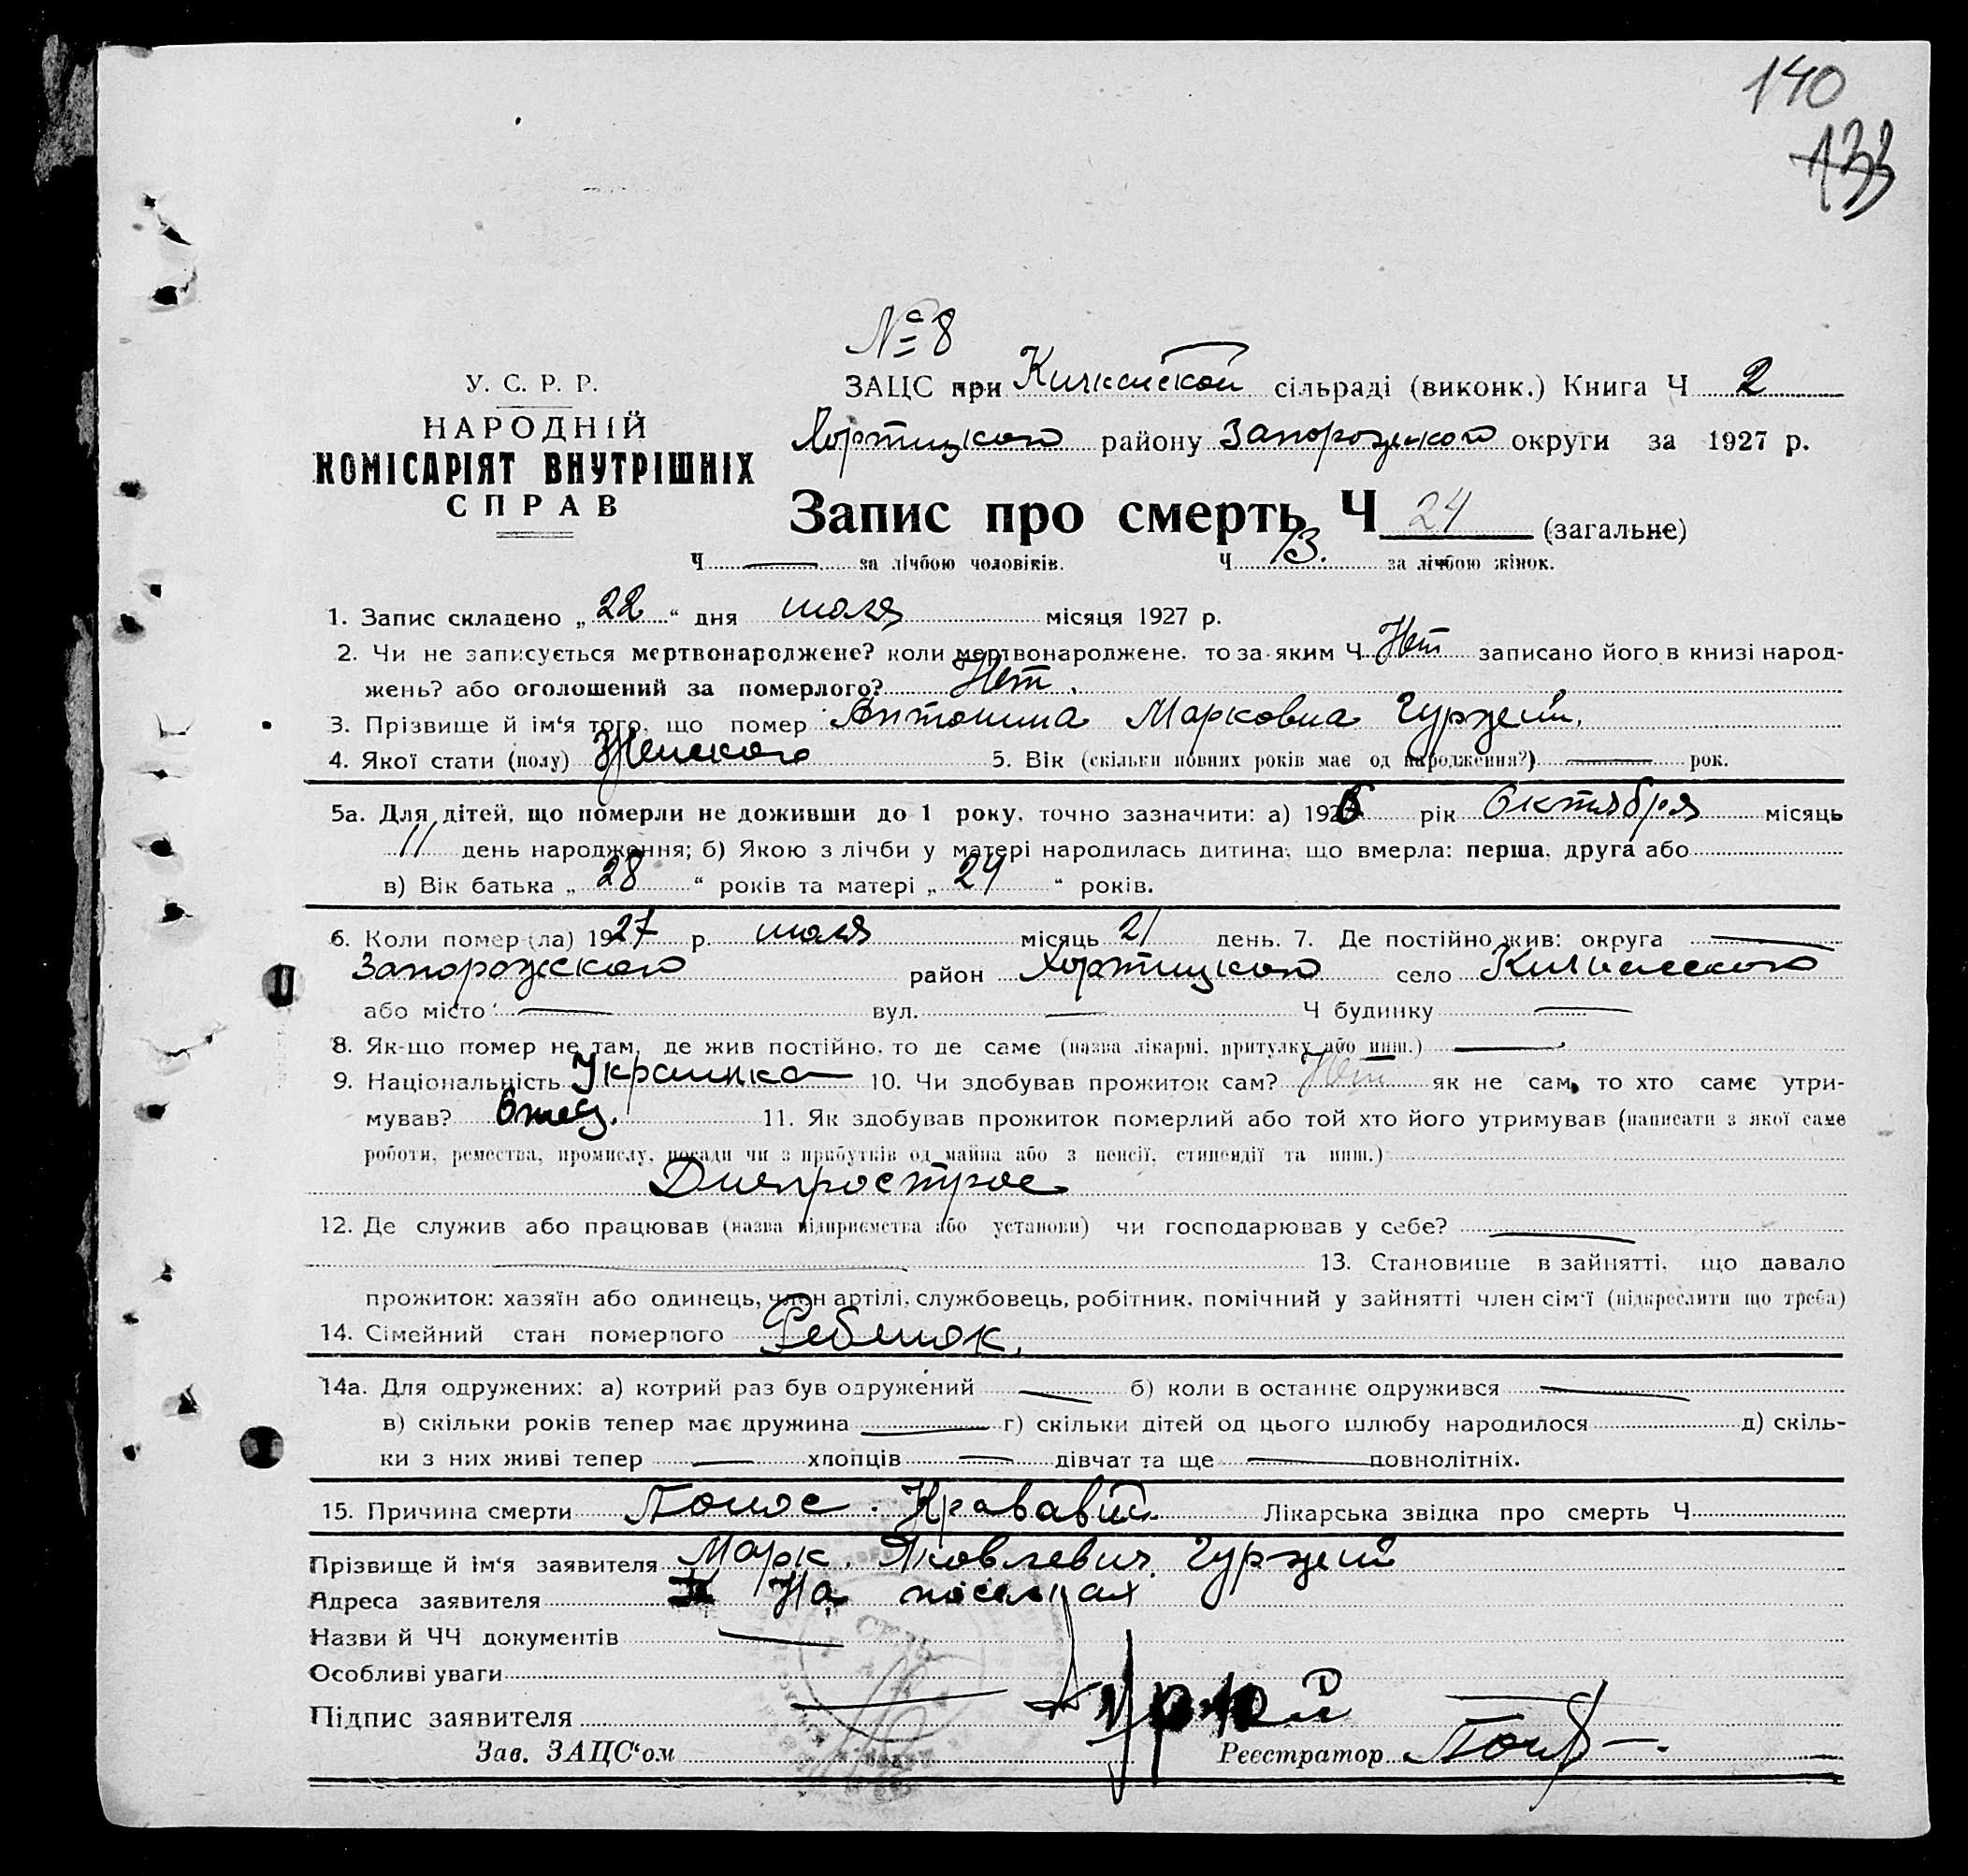 140
133
№ 8
У. С. Р. Р.
НАРОДНІЙ
КОМІСАРІЯТ ВНУТРІШНІХ
СПРАВ
ЗАЦС при Кичкасской сільраді (виконк.) Книга Ч 2
Хортицкого району Запорожского округи за 1927 р.
Запис про смерть Ч 24 (загальне)
Ч — за лічбою чоловіків. Ч 13. за лічбою жінок.
1. Запис складено „22“ дня июля місяця 1927 р.
2. Чи не записується мертвонароджене? коли мертвонароджене, то за яким Ч Нет записано його в книзі народ-
жень? або оголошений за померлого? Нет.
3. Прізвище й ім'я того, що помер Антонина Марковна Гуржей.
4. Якої стати (полу) Женского 5. Вік (скільки повних років має од народження?) — рок.
5а. Для дітей, що померли не доживши до 1 року, точно зазначити: а) 1926 рік Октября місяць
11 день народження; б) Якою з лічби у матері народилась дитина, що вмерла: перша, друга або
в) Вік батька „28“ років та матері „24“ років.
6. Коли помер (ла) 1927 р. июля місяць 21 день. 7. Де постійно жив: округа —
Запорожского район Хортицкого село Кичкасского
або місто — вул. — Ч будинку —
8. Як-що помер не там, де жив постійно, то де саме (назва лікарні, притулку або инш.) —
9. Національність Украинка 10. Чи здобував прожиток сам? Нет як не сам, то хто саме утри-
мував? Отец. 11. Як здобував прожиток померлий або той хто його утримував (написати з якої саме
роботи, ремества, промислу, посади чи з прибутків од майна або з пенсії, стипендії та инш.)
Днепрострое
12. Де служив або працював (назва підприємства або установи) чи господарював у себе? —
— 13. Становище в зайнятті, що давало
прожиток: хазяїн або одинець, член артілі, службовець, робітник, помічний у зайнятті член сім'ї (підкреслити що треба)
14. Сімейний стан померлого Ребенок.
14а. Для одружених: а) котрий раз був одружений — б) коли в останнє одружився —
в) скільки років тепер має дружина — г) скільки дітей од цього шлюбу народилося д) скіль-
ки з них живі тепер — хлопців — дівчат та ще — повнолітніх.
15. Причина смерти Понос. Крававий. Лікарська звідка про смерть Ч
Прізвище й ім'я заявителя Марк. Яковлевич. Гуржей
Адреса заявителя На поселках
Назви й ЧЧ документів —
Особливі уваги
Підпис заявителя —
Зав. ЗАЦС'ом Реєстратор